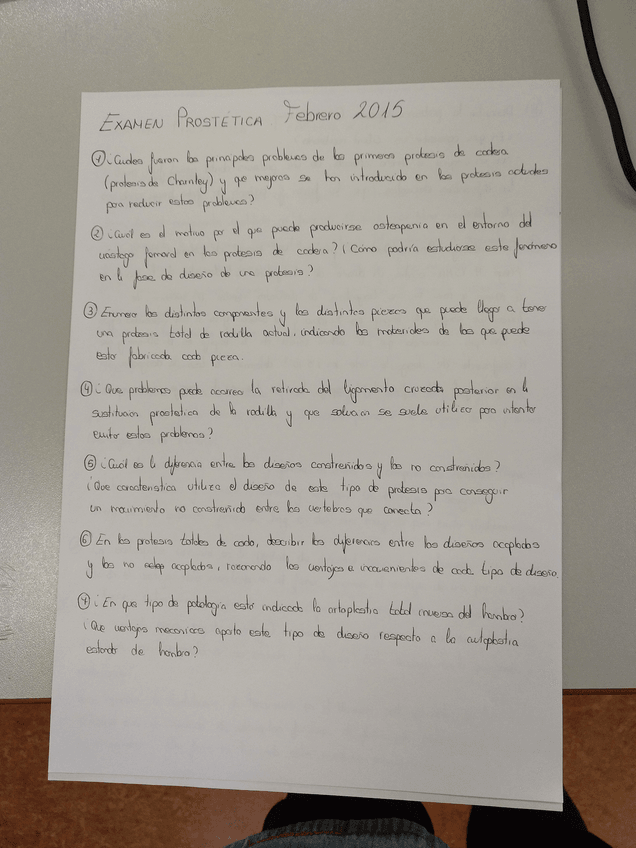 EXAMEN PROSTÉTICA Febrero 2015
① ¿Cuáles fueron los principales problemas de las primeras prótesis de cadera
(prótesis de Charnley) y que mejoras se han introducido en las prótesis actuales
para reducir estos problemas?
② ¿Cuál es el motivo por el que puede producirse osteopenia en el entorno del
vástago femoral en las prótesis de cadera? ¿Cómo podría estudiarse este fenómeno
en la fase de diseño de una prótesis?
③ Enumera los distintos componentes y las distintas piezas que puede llegar a tener
una prótesis total de rodilla actual, indicando los materiales de los que puede
estar fabricada cada pieza.
④ ¿Que problemas puede acarrear la retirada del ligamento cruzado posterior en la
sustitución prostética de la rodilla y que solución se suele utilizar para intentar
evitar estos problemas?
⑤ ¿Cuál es la diferencia entre los diseños constreñidos y los no constreñidos?
¿Que característica utiliza el diseño de este tipo de prótesis para conseguir
un movimiento no constreñido entre las vértebras que conecta?
⑥ En las prótesis totales de codo, describir las diferencias entre los diseños acoplados
y los no acoplados, razonando las ventajas e inconvenientes de cada tipo de diseño.
⑦ ¿En que tipo de patología está indicada la artroplastia total inversa del hombro?
¿Que ventajas mecánicas aporta este tipo de diseño respecto a la artroplastia
estándar de hombro?